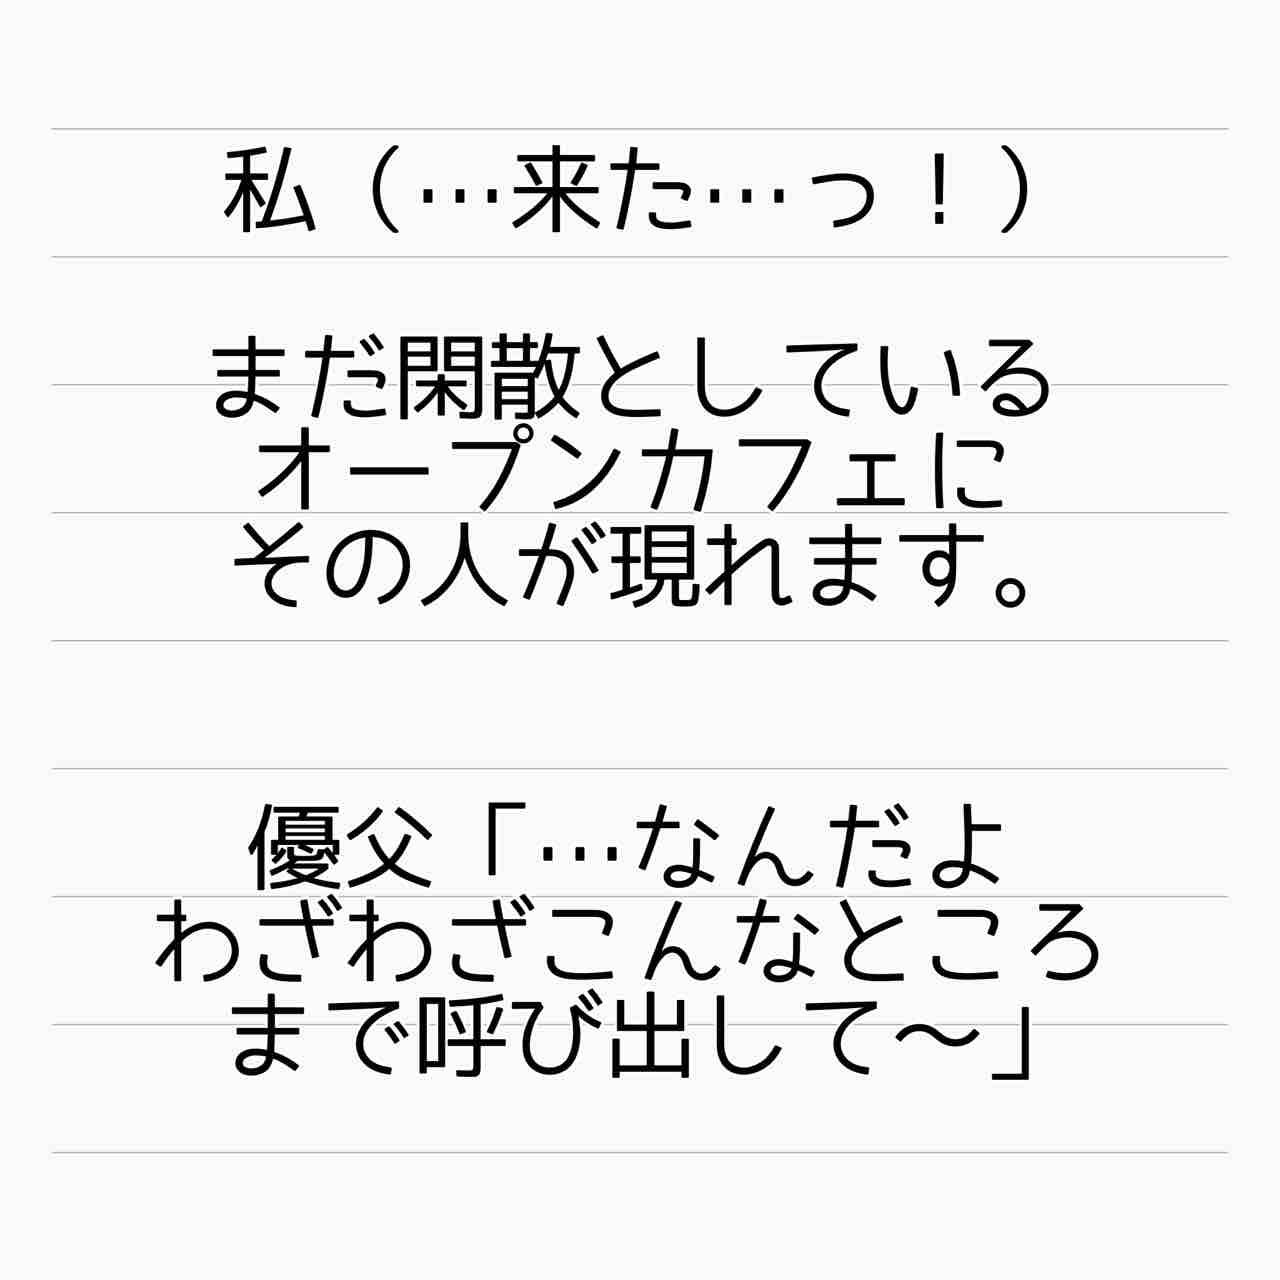 私（…来た…っ！）
まだ閑散としている
オープンカフェに
その人が現れます。
優父「…なんだよ
わざわざこんなところ
まで呼び出して〜」